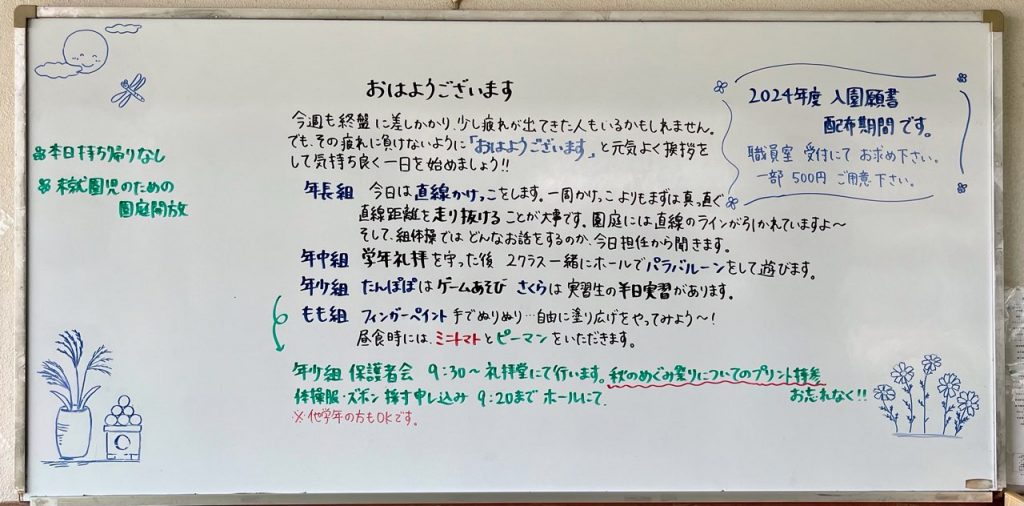 おはようございます
今週も終盤に差しかかり、少し疲れが出てきた人もいるかもしれません。
でも、その疲れに負けないように「おはようございます」と元気よく挨拶を
して気持ち良く一日を始めましょう!!
年長組 今日は直線かけっこをします。一周かけっこよりもまずは真っ直ぐ
直線距離を走り抜けることが大事です。園庭には直線のラインが引かれていますよ〜
そして、組体操ではどんなお話をするのか、今日担任から聞きます。
年中組 学年礼拝を守った後 2クラス一緒にホールでパラバルーンをして遊びます。
年少組 たんぽぽはゲームあそび さくらは実習生の半日実習があります。
もも組 フィンガーペイント 手でぬりぬり…自由に塗り広げをやってみよう〜!
昼食時には、ミニトマトとピーマンをいただきます。
年少組 保護者会 9:30〜礼拝堂にて行います。秋のめぐみ祭りについてのプリント持参
お忘れなく!!
体操服・ズボン 採寸申し込み 9:20まで ホールにて.
※他学年の方もOKです。
本日持ち帰りなし
未就園児のための
園庭開放
2024年度 入園願書
配布期間です。
職員室 受付にて お求め下さい。
一部 500円 ご用意下さい。